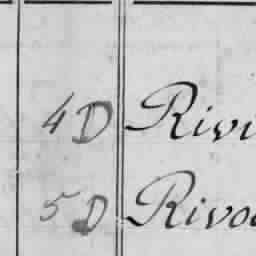 4 D Rivi
5 D Rivo